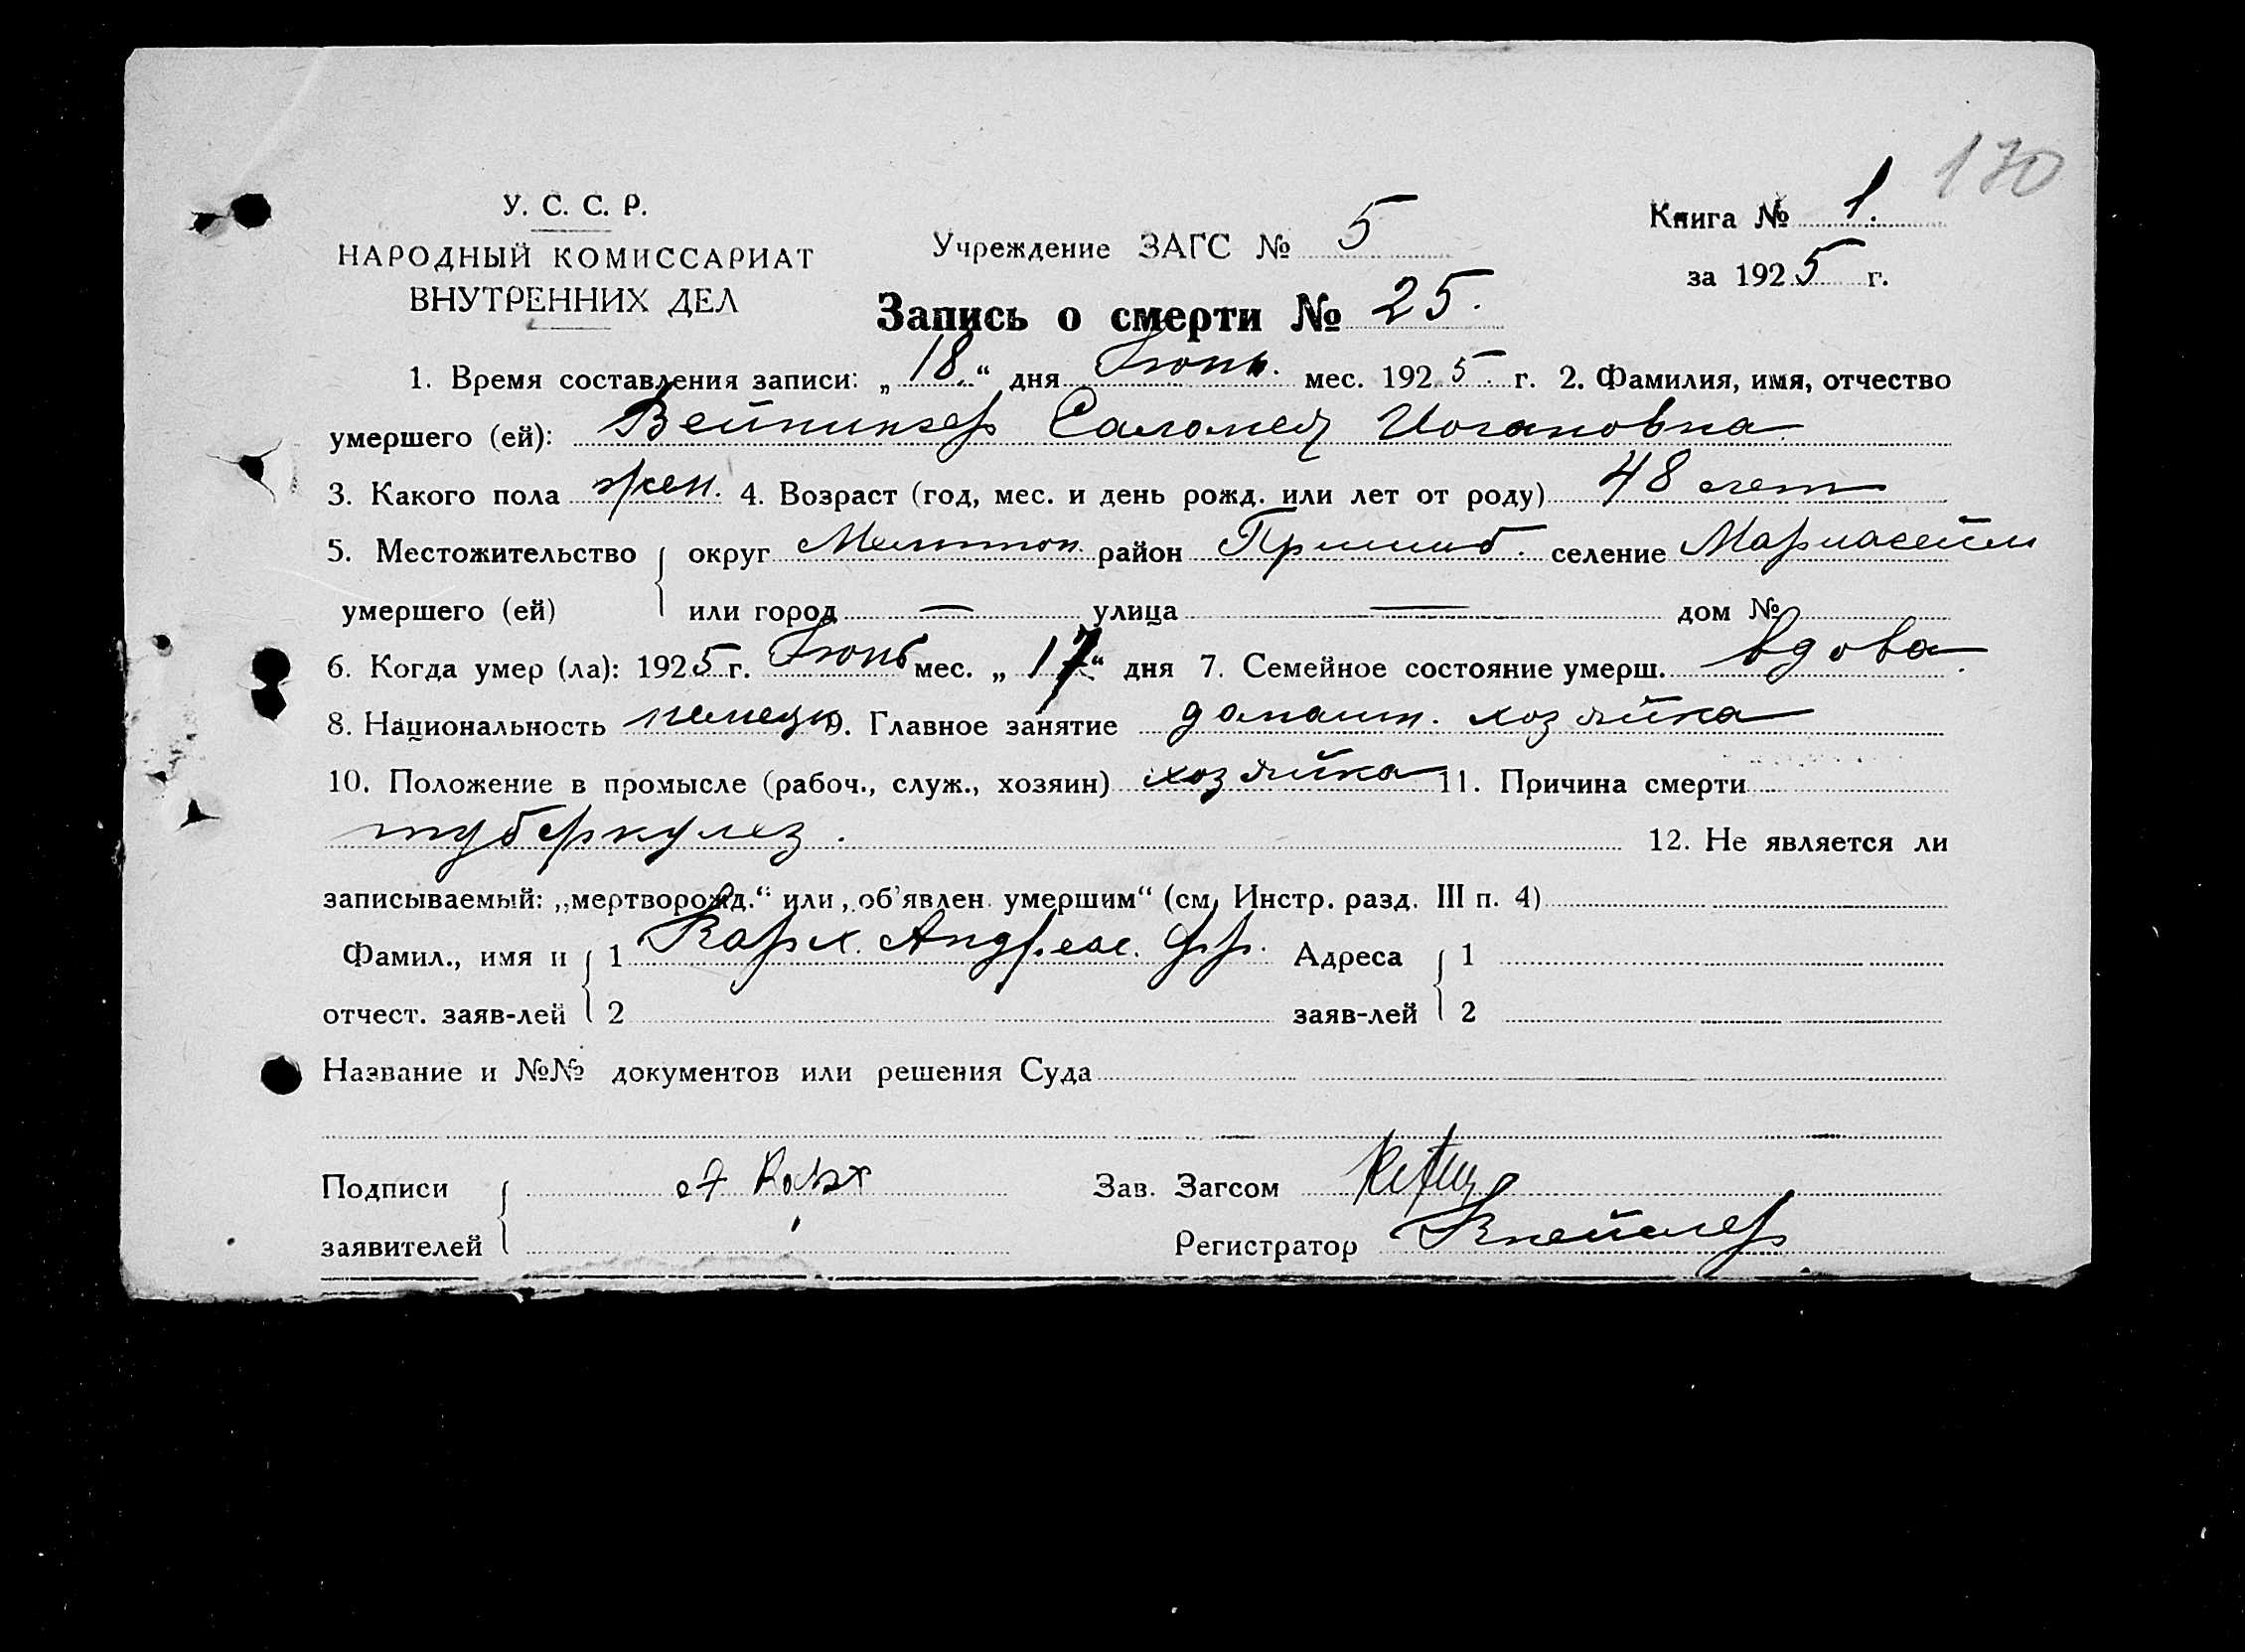 170
У. С. С. Р.
НАРОДНЫЙ КОМИССАРИАТ
ВНУТРЕННИХ ДЕЛ
Учреждение ЗАГС № 5
Книга № 1.
за 1925 г.
Запись о смерти № 25.
1. Время составления записи: „18.“ дня Июнь. мес. 1925. г. 2. Фамилия, имя, отчество
умершего (ей): Вейнингер Саломея Иогановна
3. Какого пола жен. 4. Возраст (год, мес. и день рожд. или лет от роду) 48 лет
5. Местожительство округ Мелитоп. район Пришиб. селение Мариагейм
умершего (ей) или город — улица — дом №
6. Когда умер (ла): 1925 г. Июнь мес. „17“ дня 7. Семейное состояние умерш. вдова.
8. Национальность немец. 9. Главное занятие домашн. хозяйка
10. Положение в промысле (рабоч., служ., хозяин) хозяйка 11. Причина смерти
туберкулез. 12. Не является ли
записываемый: „мертворожд.“ или „об'явлен умершим“ (см. Инстр. разд. III п. 4)
Фамил., имя и 1 Карх. Андреас. Фр. Адреса 1
отчест. заяв-лей 2 заяв-лей 2
Название и №№ документов или решения Суда
Подписи Зав. Загсом
заявителей Регистратор